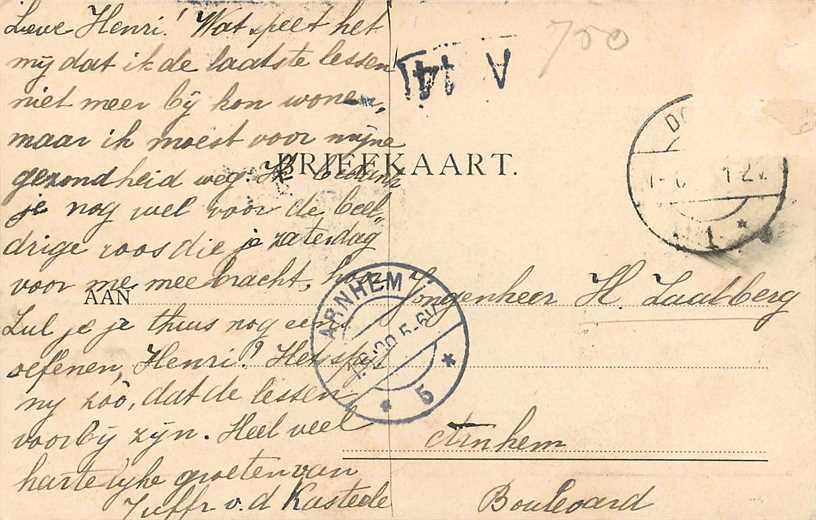 Lieve Henri! Wat speet het
mij dat ik de laatste lessen
niet meer bij kon wonen,
maar ik moest voor mijne
gezondheid weg. Ik
je nog wel voor de beel„
drige roos die je zaterdag
voor me mee bracht, hoor
Zul je je thuis nog eens
oefenen, Henri? Het spijt
mij zóó, dat de lessen
voorbij zijn. Heel veel
hartelijke groeten van
Juffr v. d Kasteele
750
A 14
BRIEFKAART.
DO
1
AAN
Jongenheer H. Laatberg
ARNHEM
5-6V
5
Arnhem
Boulevard